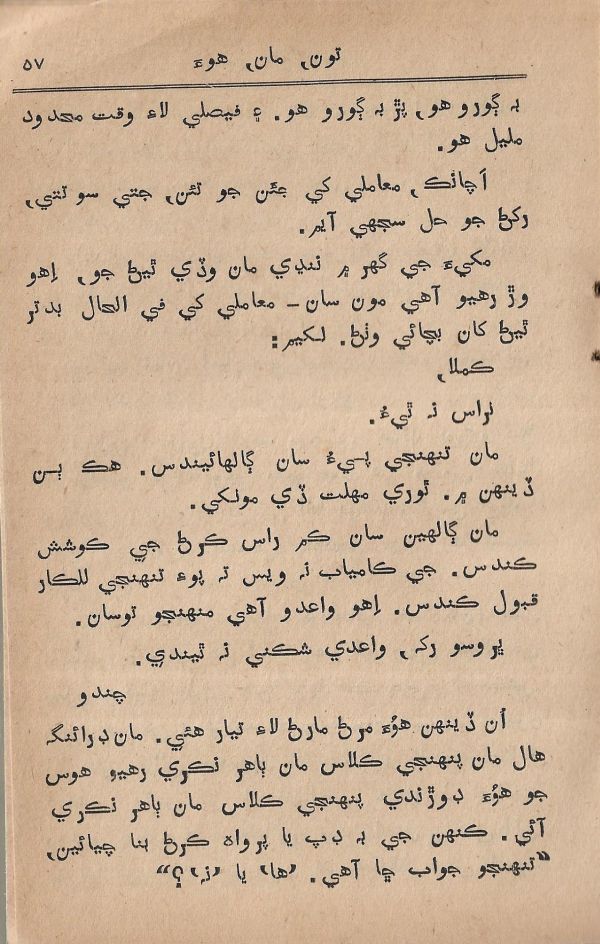 تون, مان, هوءَ ٥٧
بہ ڳورو هو, پڙ بہ ڳورو هو. ۽ فيصلي لاءِ وقت محدود
مليل هو.
اَچانڪ, معاملي کي جيئن جو تيئن, جتي سو تتي,
رکڻ جو حل سجهي آيم.
مکيءَ جي گهر ۾ ننڍي مان وڏي ٿيڻ جو, اِهو
وڙ رهيو آهي مون سان ـ معاملي کي في الحال بدتر
ٿيڻ کان بچائي وٺڻ. لکيم:
ڪملا,
نراس نہ ٿيءُ.
مان تنهنجي پيءُ سان ڳالهائيندس. هڪ ٻن
ڏينهن ۾. ٿوري مهلت ڏي مونکي.
مان ڳالهين سان ڪم راس ڪرڻ جي ڪوشش
ڪندس. جي ڪامياب نہ ويس تہ پوءِ تنهنجي للڪار
قبول ڪندس. اِهو واعدو آهي منهنجو توسان.
ڀروسو رکہ, واعدي شڪني نہ ٿيندي.
چندو
اُن ڏينهن هوُءَ مرڻ مارڻ لاءِ تيار هئي. مان ڊرائنگ
هال مان پنهنجي ڪلاس مان ٻاهر نڪري رهيو هوس
جو هوُءَ ڊوڙندي پنهنجي ڪلاس مان ٻاهر نڪري
آئي. ڪنهن جي بہ ڊپ يا پرواھ ڪرڻ بنا چيائين,
”تنهنجو جواب ڇا آهي. ’ها‘ يا ’نہ‘؟“